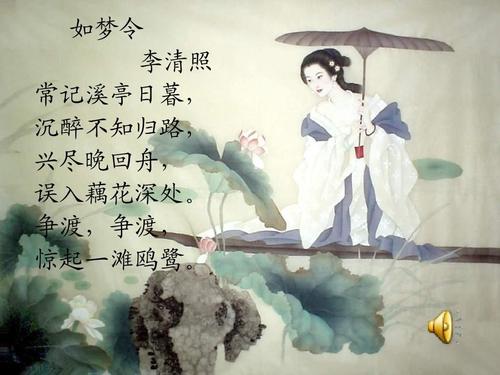 如梦令
李清照
常记溪亭日暮，
沉醉不知归路，
兴尽晚回舟，
误入藕花深处。
争渡，争渡，
惊起一滩鸥鹭。